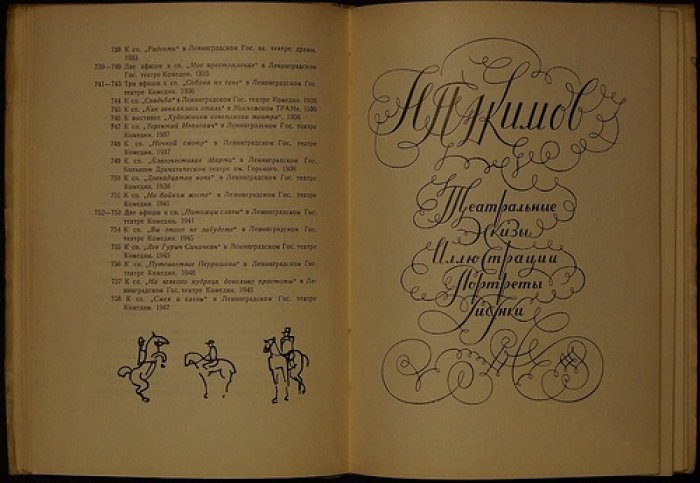 738 К сп. „Радость“ в Ленинградском Гос. ак. театре драмы,
1933
739—740 Две афиши к сп. „Мое преступление“ в Ленинградском
Гос. театре Комедии. 1935
741—743 Три афиши к сп. „Собака на сене“ в Ленинградском Гос.
театре Комедии. 1936
744 К сп. „Свадьба“ в Ленинградском Гос. театре Комедии. 1936
745 К сп. „Как закалялась сталь“ в Московском ТРАМе.
746 К выставке „Художники советского театра“. 1936
747 К сп. „Терентий Иванович“ в Ленинградском Гос. театре
Комедии. 1937
748 К сп. „Ночной смотр“ в Ленинградском Гос. театре Комедии.
1937
749 К сп. „Благочестивая Марта“ в Ленинградском Гос.
Большом Драматическом театре им. Горького. 1938
750 К сп. „Двенадцатая ночь“ в Ленинградском Гос. театре
Комедии. 1938
751 К сп. „На бойком месте“ в Ленинградском Гос. театре
Комедии. 1941
752—753 Две афиши к сп. „Питомцы славы“ в Ленинградском Гос.
театре Комедии. 1941
754 К сп. „Вы этого не забудете“ в Ленинградском Гос. театре
Комедии. 1945
755 К сп. „Лев Гурыч Синичкин“ в Ленинградском Гос. театре
Комедии. 1945
756 К сп. „Путешествие Перришона“ в Ленинградском Гос.
театре Комедии. 1946
757 К сп. „На всякого мудреца довольно простоты“ в Ле-
нинградском Гос. театре Комедии. 1946
758 К сп. „Смех и слезы“ в Ленинградском Гос. театре
Комедии. 1947
Н.П. Акимов
Театральные
Эскизы
Иллюстрации
Портреты
Рисунки